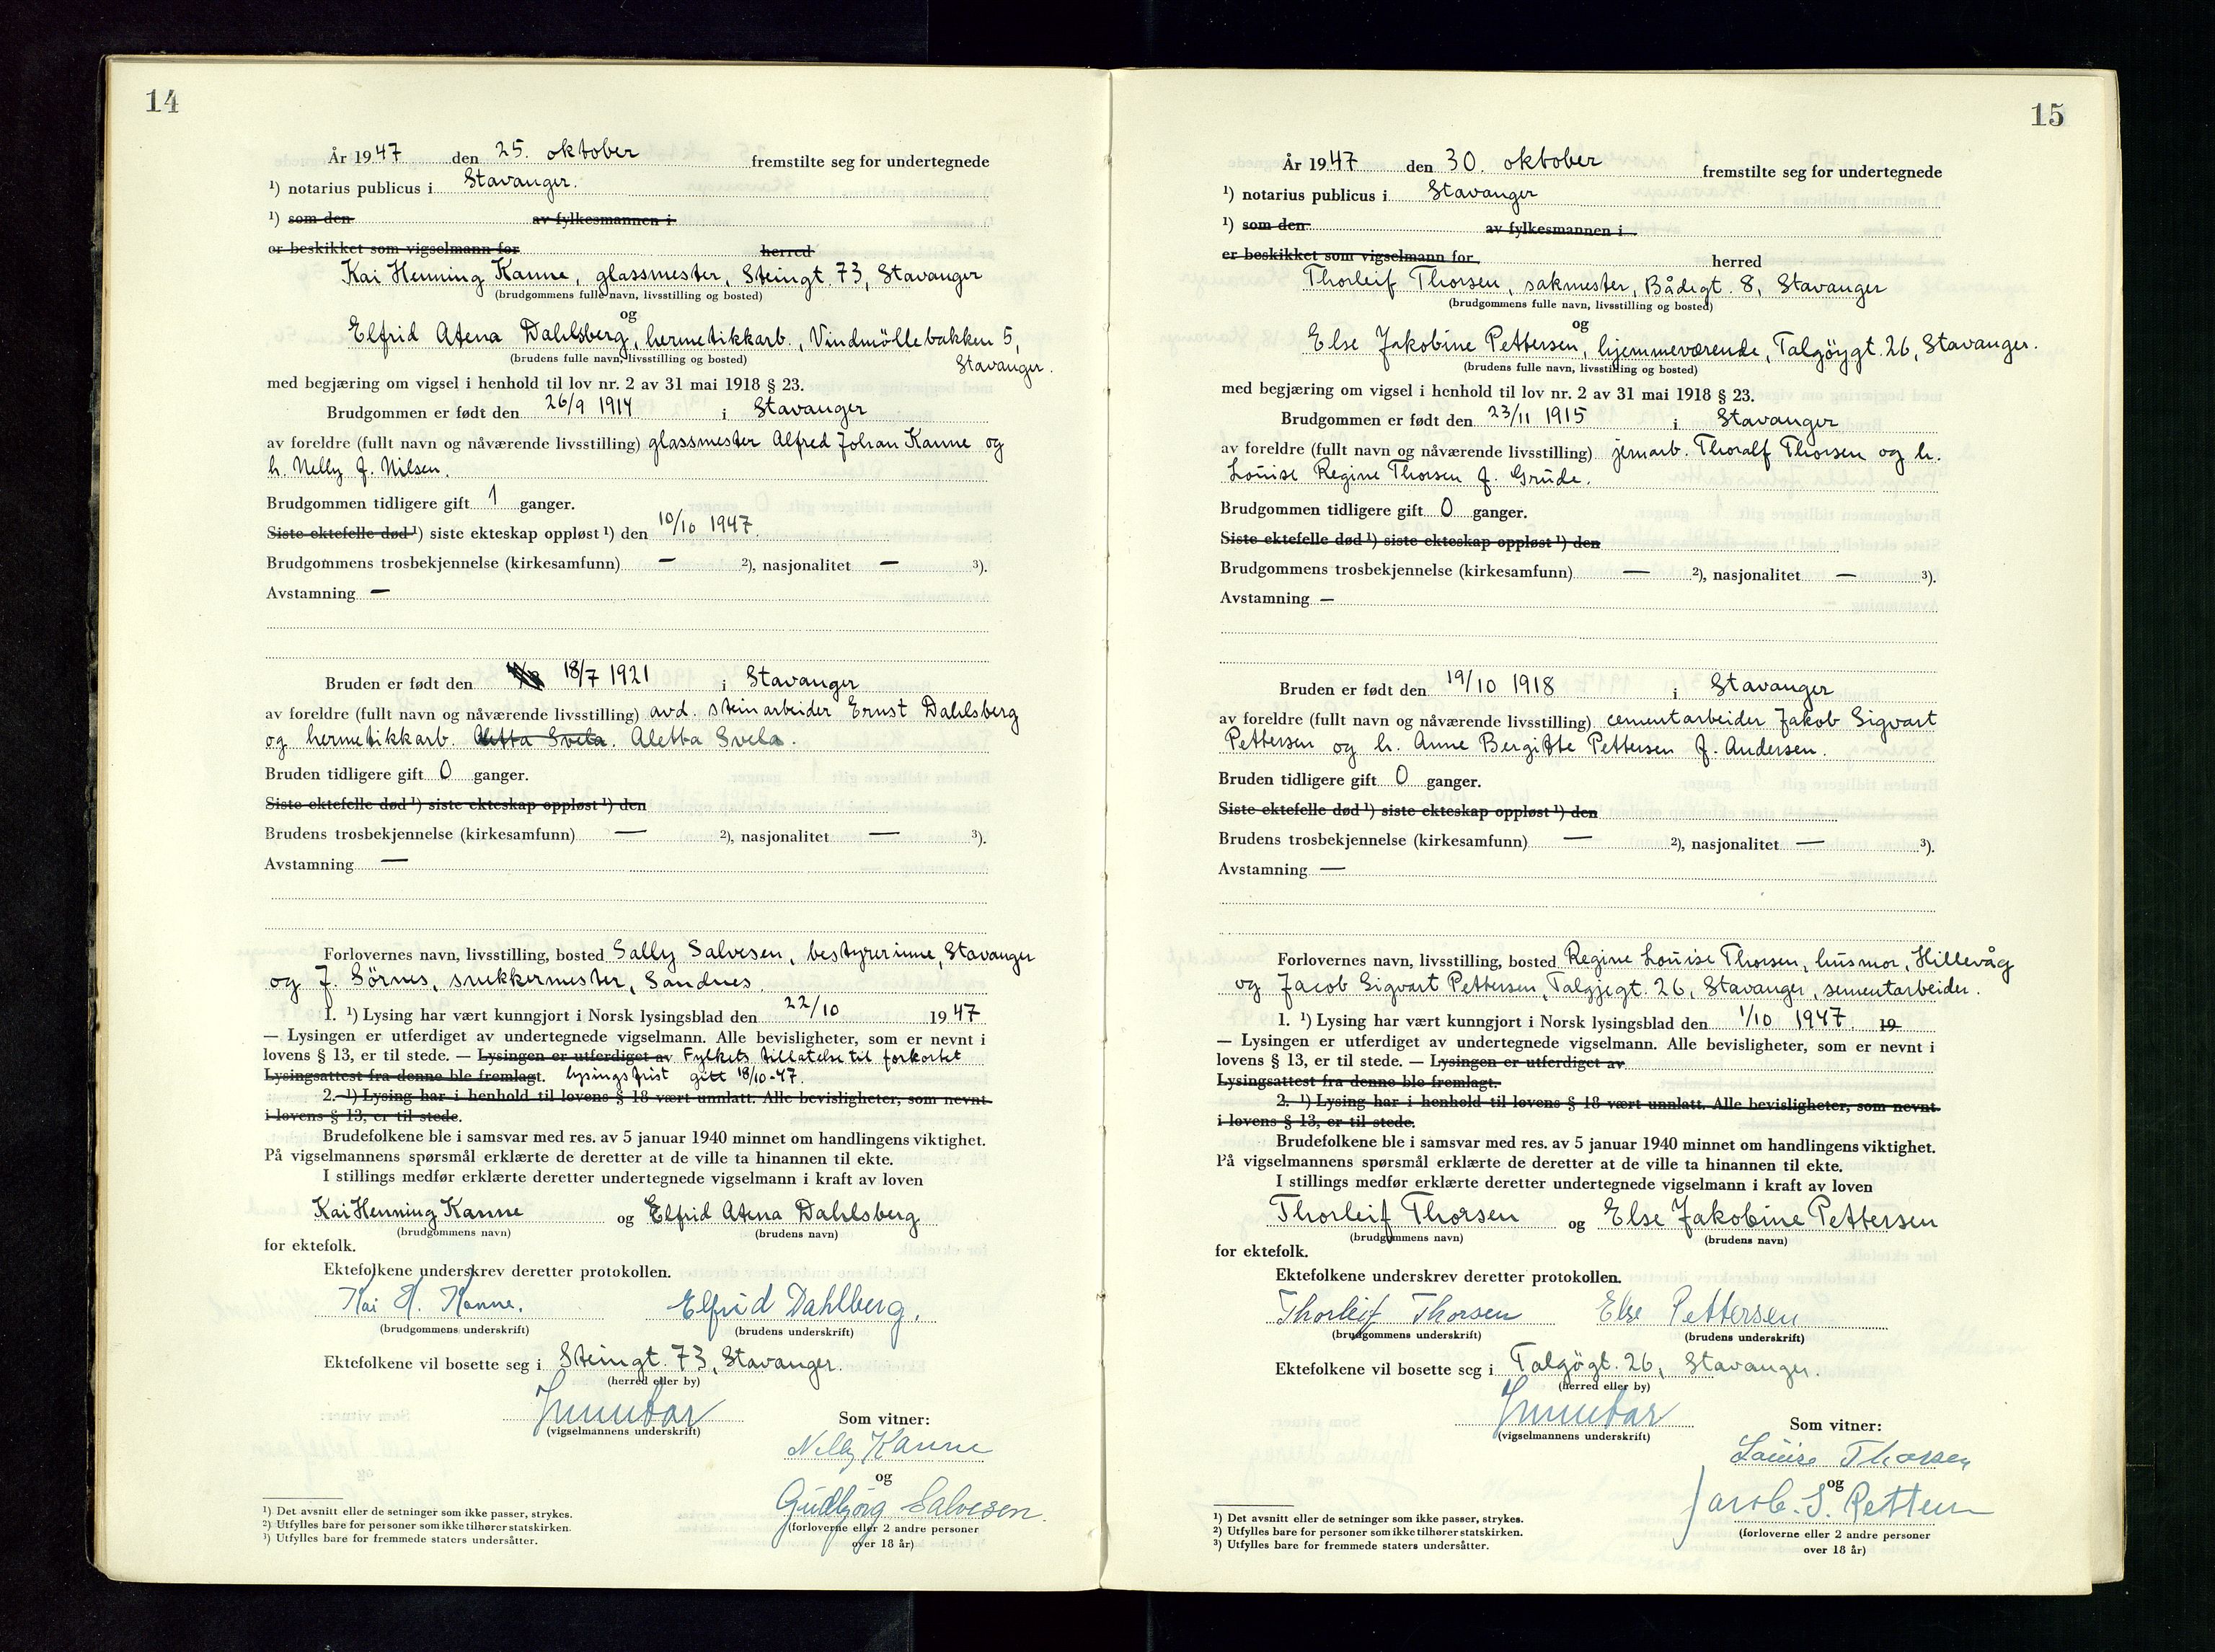 14
År 1947 den 25. oktober fremstilte seg for undertegnede
¹) notarius publicus i Stavanger.
¹) som den av fylkesmannen i
er beskikket som vigselmann for herred
Kai Henning Kanne, glassmester, Steingt. 73, Stavanger
(brudgommens fulle navn, livsstilling og bosted)
og
Elfrid Atena Dahlsberg, hermetikkarb., Vindmöllebakken 5,
(brudens fulle navn, livsstilling og bosted)
Stavanger.
med begjæring om vigsel i henhold til lov nr. 2 av 31 mai 1918 § 23.
Brudgommen er født den 26/9 1914 i Stavanger
av foreldre (fullt navn og nåværende livsstilling) glassmester Alfred Johan Kanne og
h. Nelly f. Nilsen.
Brudgommen tidligere gift 1 ganger.
Siste ektefelle død ¹) siste ekteskap oppløst ¹) den 10/10 1947.
Brudgommens trosbekjennelse (kirkesamfunn) — ²), nasjonalitet — ³).
Avstamning —
Bruden er født den 18/7 1921 i Stavanger
av foreldre (fullt navn og nåværende livsstilling) avd. steinarbeider Ernst Dahlsberg
og hermetikkarb. Aletta Svela. Aletta Svela.
Bruden tidligere gift 0 ganger.
Siste ektefelle død ¹) siste ekteskap oppløst ¹) den
Brudens trosbekjennelse (kirkesamfunn) — ²), nasjonalitet — ³).
Avstamning —
Forlovernes navn, livsstilling, bosted Sally Salvesen, bestyrerinne, Stavanger
og J. Sörnes, snekkermester, Sandnes.
1. ¹) Lysing har vært kunngjort i Norsk lysingsblad den 22/10 1947
— Lysingen er utferdiget av undertegnede vigselmann. Alle bevisligheter, som er nevnt i
lovens § 13, er til stede. — Lysingen er utferdiget av Fylkets tillatelse til forkortet
Lysingsattest fra denne ble fremlagt. lysingsfrist gitt 18/10-47.
2. ¹) Lysing har i henhold til lovens § 18 vært unnlatt. Alle bevisligheter, som nevnt
i lovens § 13, er til stede.
Brudefolkene ble i samsvar med res. av 5 januar 1940 minnet om handlingens viktighet.
På vigselmannens spørsmål erklærte de deretter at de ville ta hinannen til ekte.
I stillings medfør erklærte deretter undertegnede vigselmann i kraft av loven
Kai Henning Kanne og Elfrid Atena Dahlsberg
(brudgommens navn) (brudens navn)
for ektefolk.
Ektefolkene underskrev deretter protokollen.
Kai H. Kanne. Elfrid Dahlberg.
(brudgommens underskrift) (brudens underskrift)
Ektefolkene vil bosette seg i Steingt. 73, Stavanger.
(herred eller by)
(vigselmannens underskrift)
Som vitner:
Nelly Kanne
og
Gudbjörg Salvesen.
(forloverne eller 2 andre personer
over 18 år)
¹) Det avsnitt eller de setninger som ikke passer, strykes.
²) Utfylles bare for personer som ikke tilhører statskirken.
³) Utfylles bare for fremmede staters undersåtter.
15
År 1947 den 30. oktober fremstilte seg for undertegnede
¹) notarius publicus i Stavanger
¹) som den av fylkesmannen i
er beskikket som vigselmann for herred
Thorleif Thorsen, sakmester, Bådegt. 8, Stavanger
(brudgommens fulle navn, livsstilling og bosted)
og
Else Jakobine Pettersen, hjemmeværende, Talgöygt. 26, Stavanger.
(brudens fulle navn, livsstilling og bosted)
med begjæring om vigsel i henhold til lov nr. 2 av 31 mai 1918 § 23.
Brudgommen er født den 23/11 1915 i Stavanger
av foreldre (fullt navn og nåværende livsstilling) jernarb. Thoralf Thorsen og h.
Louise Regine Thorsen f. Grude.
Brudgommen tidligere gift 0 ganger.
Siste ektefelle død ¹) siste ekteskap oppløst ¹) den
Brudgommens trosbekjennelse (kirkesamfunn) — ²), nasjonalitet — ³).
Avstamning —
Bruden er født den 19/10 1918 i Stavanger
av foreldre (fullt navn og nåværende livsstilling) cementarbeider Jakob Sigvart
Pettersen og h. Anne Bergitte Pettersen f. Andersen.
Bruden tidligere gift 0 ganger.
Siste ektefelle død ¹) siste ekteskap oppløst ¹) den
Brudens trosbekjennelse (kirkesamfunn) — ²), nasjonalitet — ³).
Avstamning —
Forlovernes navn, livsstilling, bosted Regine Louise Thorsen, husmor, Hillevåg
og Jacob Sigvart Pettersen, Talgjegt. 26, Stavanger, sementarbeider.
1. ¹) Lysing har vært kunngjort i Norsk lysingsblad den 1/10 1947. 19
— Lysingen er utferdiget av undertegnede vigselmann. Alle bevisligheter, som er nevnt i
lovens § 13, er til stede. — Lysingen er utferdiget av
Lysingsattest fra denne ble fremlagt.
2. ¹) Lysing har i henhold til lovens § 18 vært unnlatt. Alle bevisligheter, som nevnt
i lovens § 13, er til stede.
Brudefolkene ble i samsvar med res. av 5 januar 1940 minnet om handlingens viktighet.
På vigselmannens spørsmål erklærte de deretter at de ville ta hinannen til ekte.
I stillings medfør erklærte deretter undertegnede vigselmann i kraft av loven
Thorleif Thorsen og Else Jakobine Pettersen
(brudgommens navn) (brudens navn)
for ektefolk.
Ektefolkene underskrev deretter protokollen.
Thorleif Thorsen Else Pettersen
(brudgommens underskrift) (brudens underskrift)
Ektefolkene vil bosette seg i Talgögt. 26, Stavanger.
(herred eller by)
(vigselmannens underskrift)
Som vitner:
Louise Thorsen
og
Jacob. S. Pettersen
(forloverne eller 2 andre personer
over 18 år)
¹) Det avsnitt eller de setninger som ikke passer, strykes.
²) Utfylles bare for personer som ikke tilhører statskirken.
³) Utfylles bare for fremmede staters undersåtter.